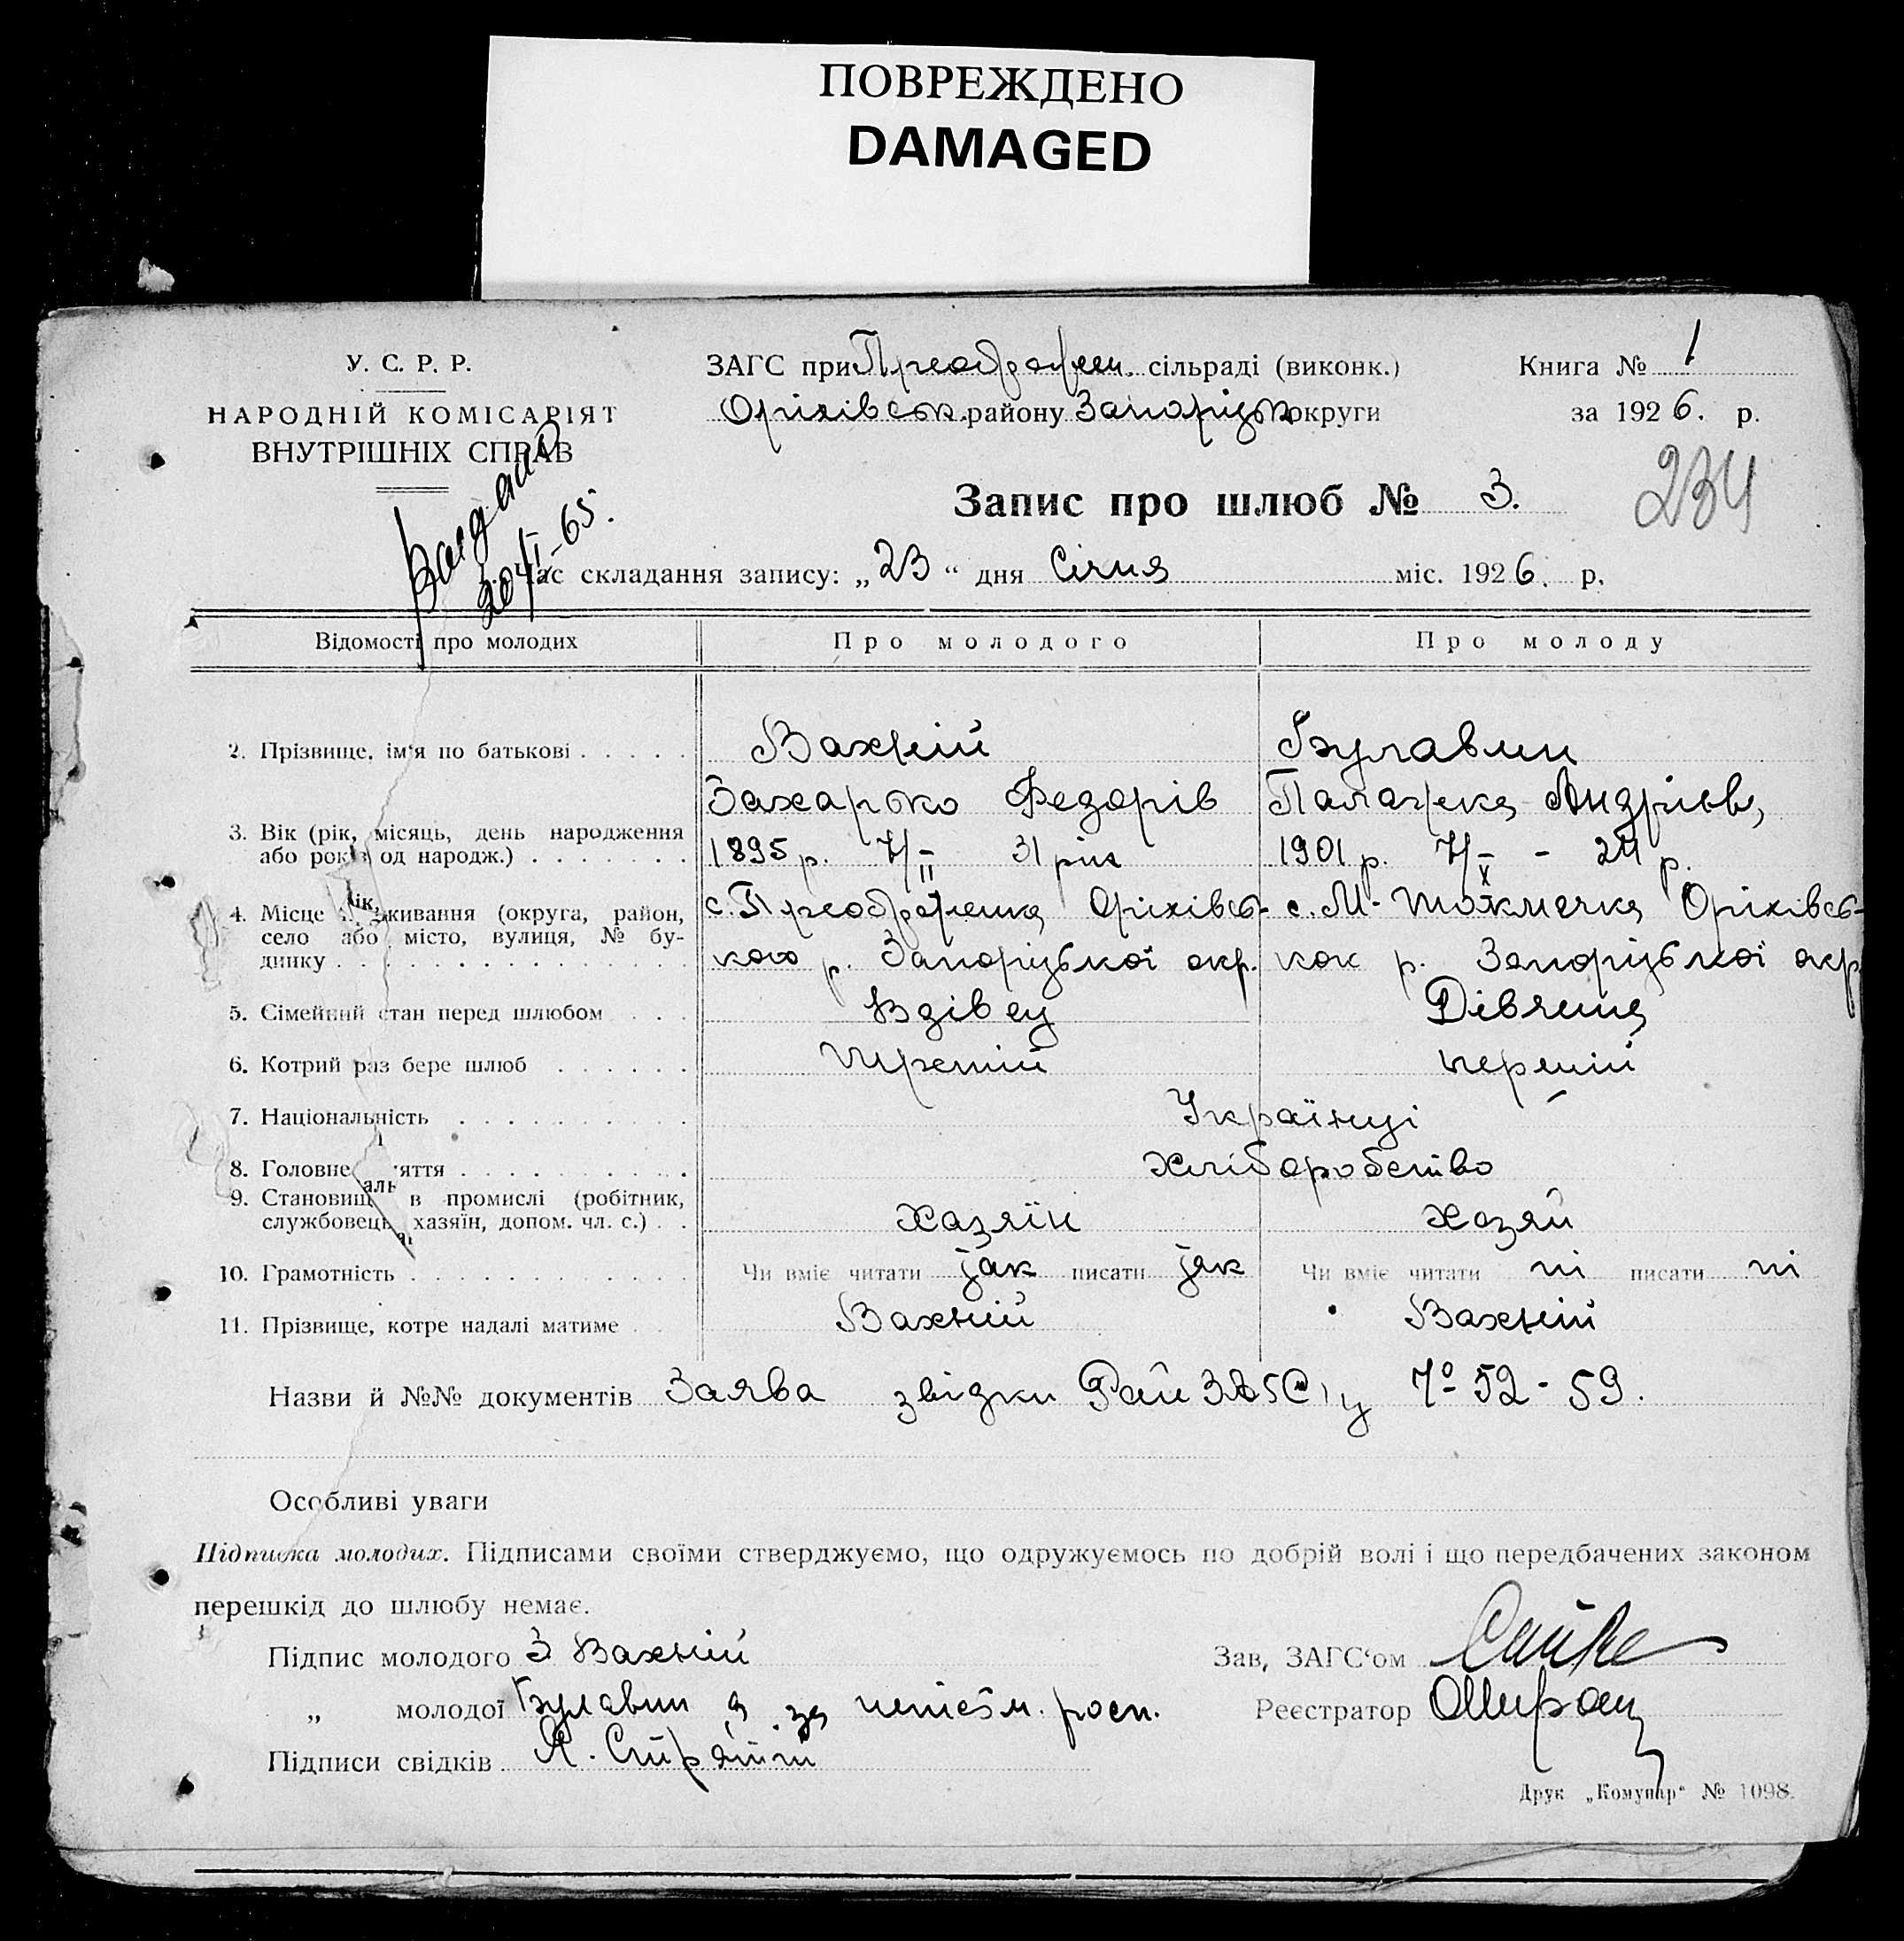 ПОВРЕЖДЕНО
DAMAGED
У. С. Р. Р.
НАРОДНІЙ КОМІСАРІЯТ
ВНУТРІШНІХ СПРАВ
ЗАГС при Преображен. сільраді (виконк.)
Оріхівськ. району Запорізьк округи
Книга № 1
за 1926. р.
234
Запис про шлюб № 3.
65.
Час складання запису: „23“ дня Січня міс. 1926. р.
Відомості про молодих Про молодого Про молоду
2. Прізвище, ім'я по батькові Вахній Булавин
Захарько Федорів Палажка Андрієв,
3. Вік (рік, місяць, день народження
або років од народж.) 1895 р. 7/II 31 рік 1901 р. 7/X - 24 р.
4. Місце живання (округа, район, с. Преображенка Оріхівсь- с. М-Токмачка Оріхівсь-
село або місто, вулиця, № бу-
динку кого р. Запорізької окр. ког р. Запорізької окр
5. Сімейний стан перед шлюбом Вдівец Дівчина
6. Котрий раз бере шлюб третій перший
7. Національність Українці
8. Головне яття Хліборобство
9. Становищ в промислі (робітник,
службовець, хазяїн, допом. чл. с.) Хазяїн Хозяй
10. Грамотність Чи вміє читати jак писати jак Чи вміє читати ні писати ні
11. Прізвище, котре надалі матиме Вахній Вахній
Назви й №№ документів Заява звідки Рай ЗАГС'у № 52-59.
Особливі уваги
Підписка молодих. Підписами своїми стверджуємо, що одружуємось по добрій волі і що передбачених законом
перешкід до шлюбу немає.
Підпис молодого З Вахній Зав, ЗАГС'ом
„ молодої Булавин а за неписьм. росп. Реєстратор
Підписи свідків
Друк „Комунар“ № 1098.